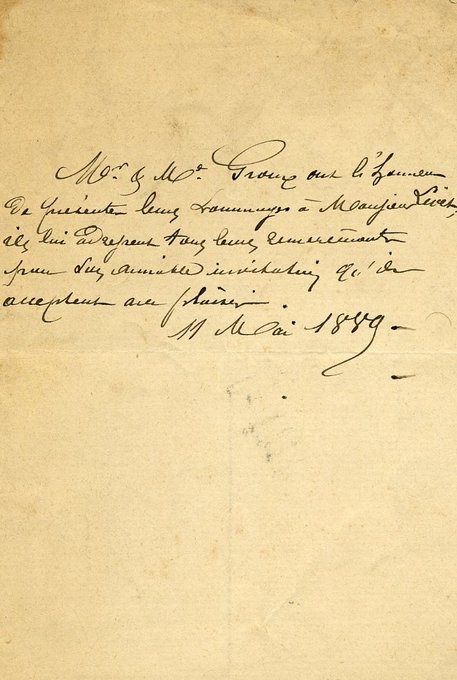 Mr. & Me. Groux ont l'honneur
de présenter leurs hommages à Monsieur
ils lui adressent tous leurs remerciements
pour son aimable invitation qu'ils
acceptent avec plaisir.
11 Mai 1889.